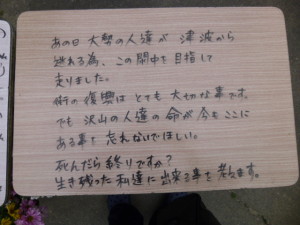 あの日 大勢の人達が 津波から
逃れる為、この閖中を目指して
走りました。
街の復興は とても 大切な事です。
でも 沢山の人達の 命が 今も ここに
ある事を 忘れないでほしい。
死んだら 終りですか?
生き残った 私達に 出来る事を 考えます。